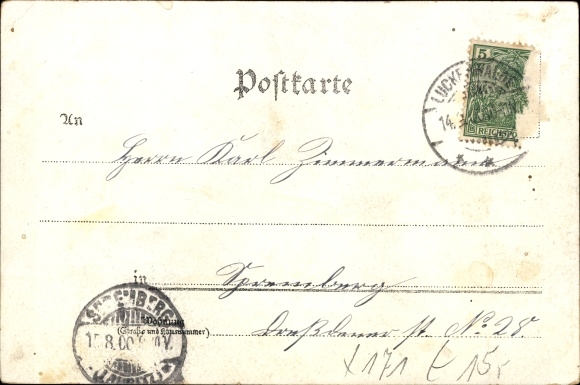 Postkarte
5
REICHSPO
LUCKENWALDE
14.
An
Herrn Karl Zimmermann
in Spremberg
SPREMBERG
15.8.00 V.
(LAUSITZ)
Wohnung
(Straße und Hausnummer)
Dresdener st. No 28.
171 15